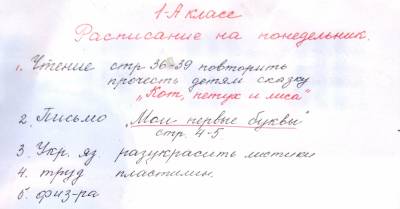 1-А класс
Расписание на понедельник.
1. Чтение стр 36-39 повторить
прочесть детям сказку
„Кот, петух и лиса"
2. Письмо „Мои первые буквы"
стр. 4-5
3. Укр. яз. разукрасить листики
4. труд пластилин.
5. физ-ра